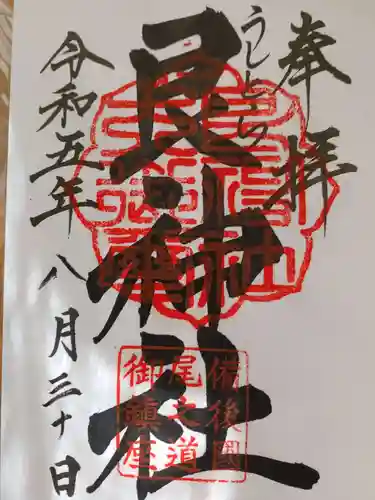 奉拝
うしとら
艮神社
令和五年八月三十日
備後國
尾之道
御鎮座